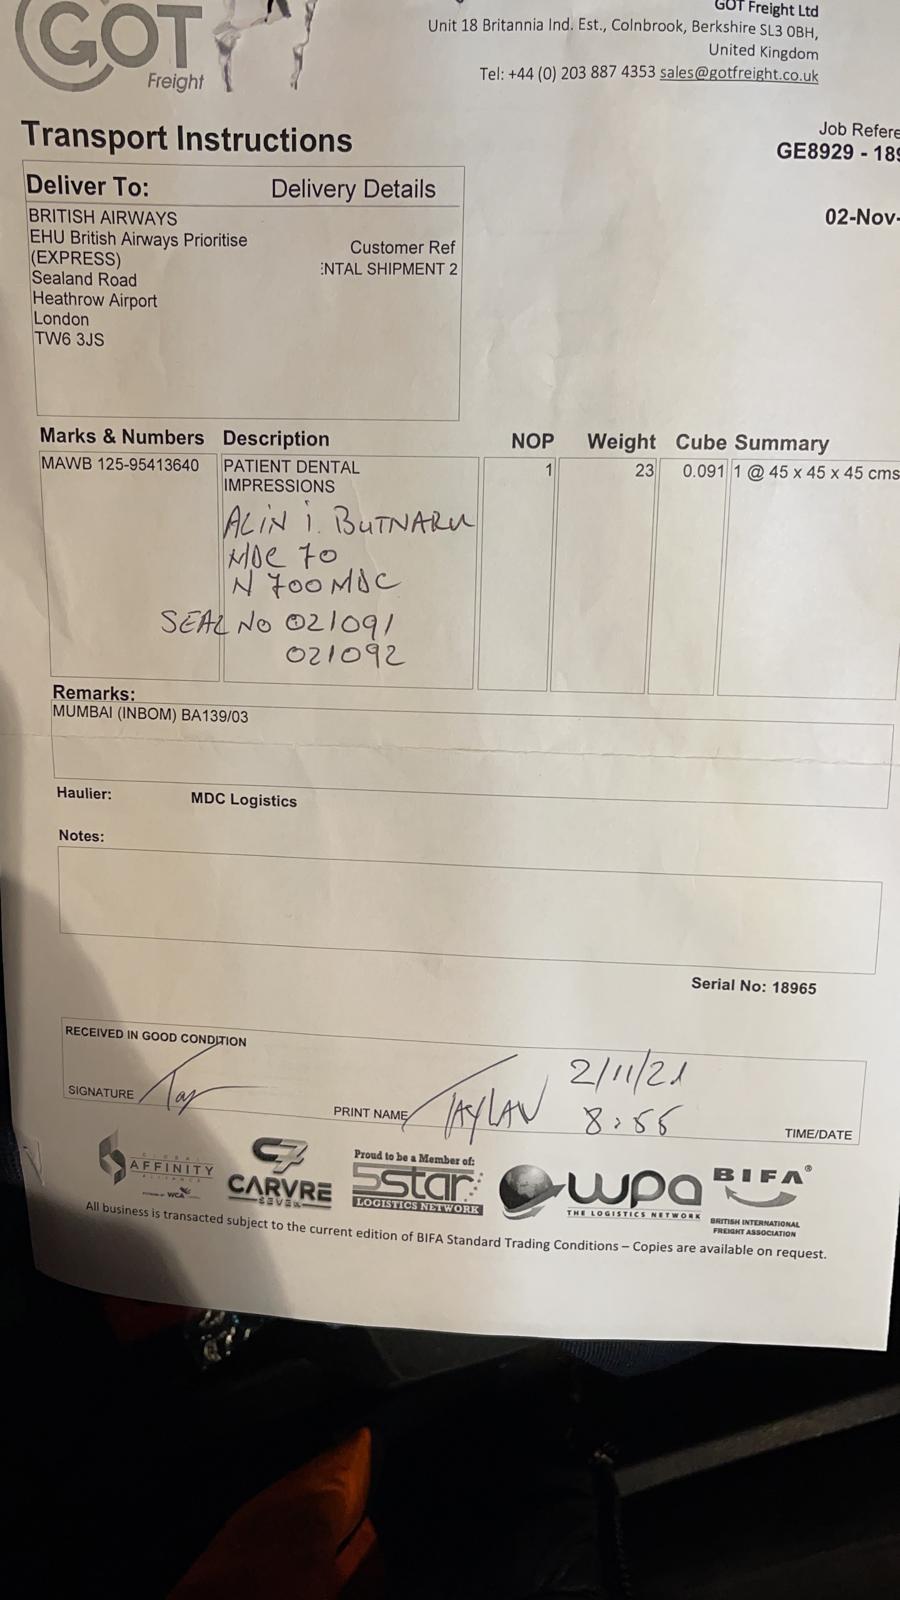 GOT
Freight
GOT Freight Ltd
Unit 18 Britannia Ind. Est., Colnbrook, Berkshire SL3 0BH,
United Kingdom
Tel: +44 (0) 203 887 4353 sales@gotfreight.co.uk
Transport Instructions
Job Refere
GE8929 - 189
02-Nov-
Deliver To: Delivery Details
BRITISH AIRWAYS
EHU British Airways Prioritise
(EXPRESS)
Sealand Road
Heathrow Airport
London
TW6 3JS
Customer Ref
ENTAL SHIPMENT 2
Marks & Numbers Description NOP Weight Cube Summary
MAWB 125-95413640 PATIENT DENTAL 1 23 0.091 1 @ 45 x 45 x 45 cms
IMPRESSIONS
ALIN I. BUTNARU
MDC 70
N 700 MDC
SEAL NO 021091
021092
Remarks:
MUMBAI (INBOM) BA139/03
Haulier: MDC Logistics
Notes:
Serial No: 18965
RECEIVED IN GOOD CONDITION
SIGNATURE Tay PRINT NAME TAYLAN 2/11/21
8:55 TIME/DATE
GLOBAL
AFFINITY
ALLIANCE
WCA
C7
CARVRE
SEVEN
Proud to be a Member of:
5star
LOGISTICS NETWORK
wpa
THE LOGISTICS NETWORK
BIFA®
BRITISH INTERNATIONAL
FREIGHT ASSOCIATION
All business is transacted subject to the current edition of BIFA Standard Trading Conditions – Copies are available on request.